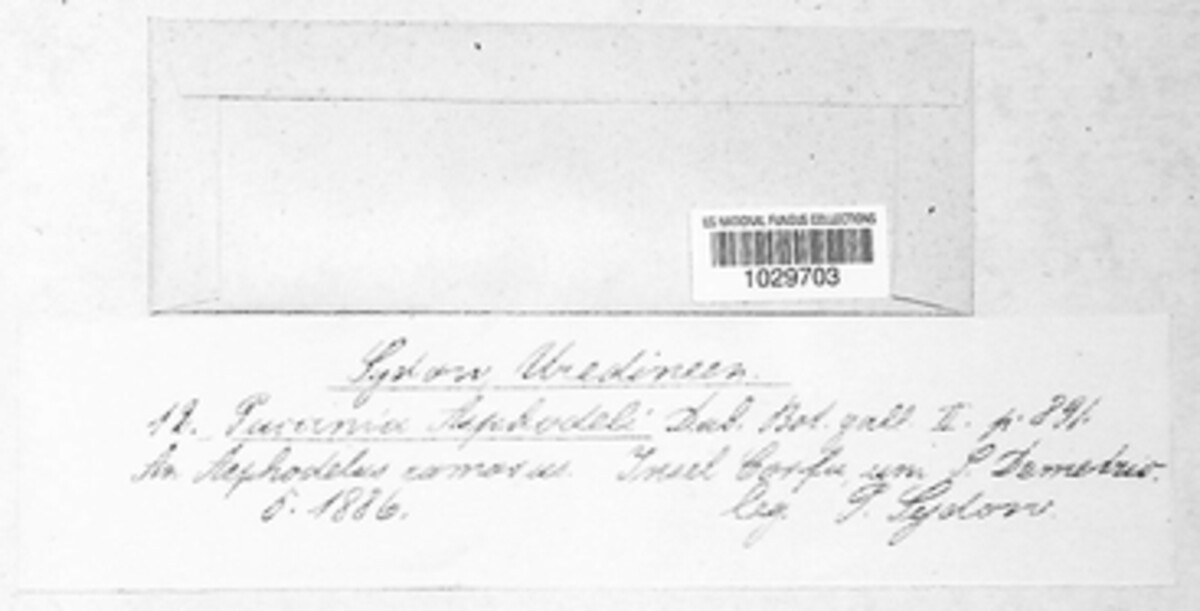 US NATIONAL FUNGUS COLLECTIONS
1029703
Sydow, Uredineen.
12. Puccinia Asphodeli Dub. Bot. gall. II. p. 891.
An Asphodelus ramosus. Insel Corfu, um S. Demetrio.
5. 1886. leg. P. Sydow.